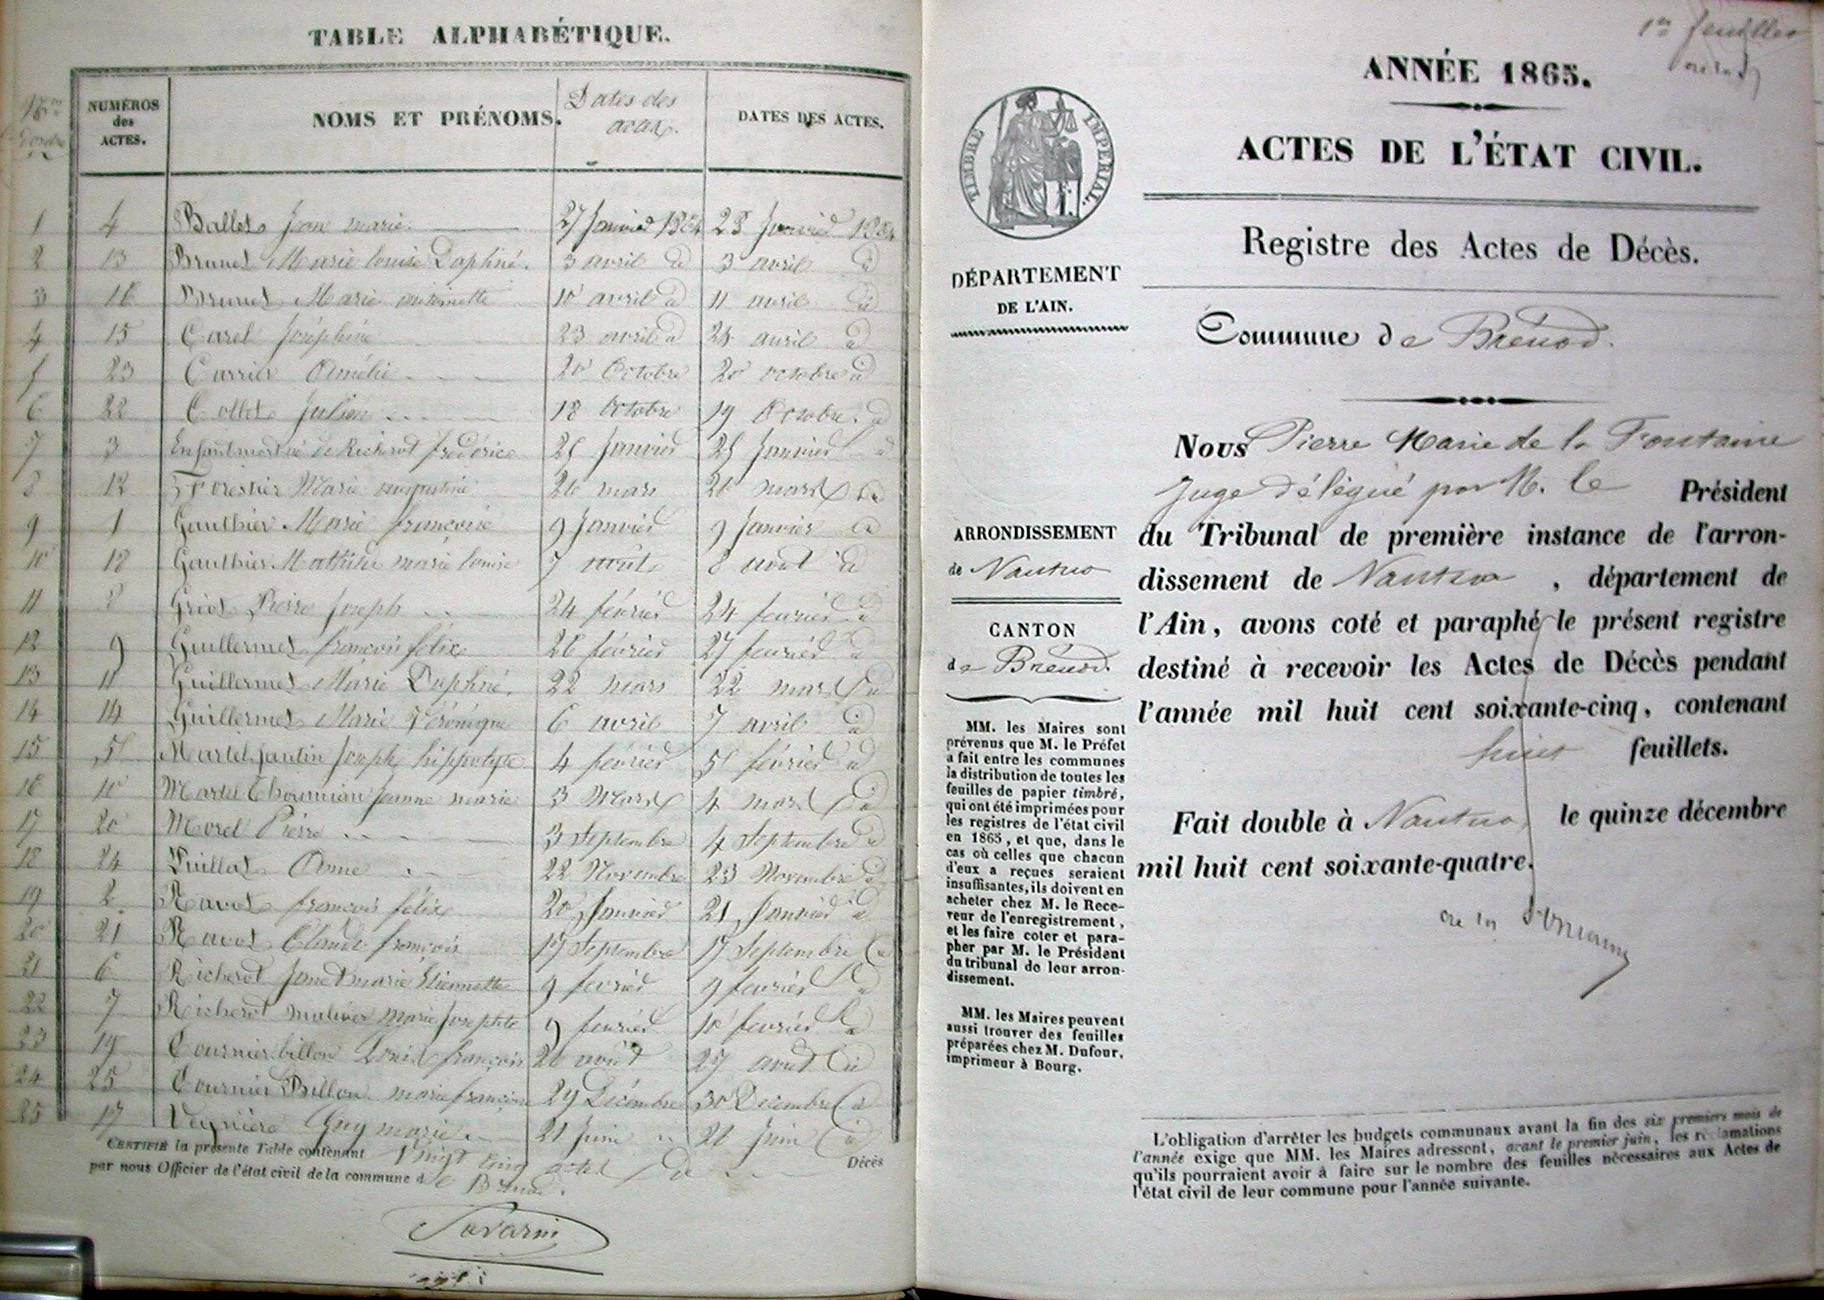 TABLE ALPHABÉTIQUE.
NUMÉROS des ACTES. NOMS ET PRÉNOMS. Dates des actes. DATES DES ACTES.
1 4 Ballet Jean marie 27 Janvier 1864 28 Janvier 1864
2 13 Brunet Marie louise Daphné. 3 avril id 3 avril id
3 16 Brunet Marie antoinette 10 avril id 11 avril id
4 15 Carel Joséphine 23 avril id 24 avril id
5 23 Carrier Amélie 20 Octobre 20 octobre id
6 22 Collet Julien 18 Octobre 19 Octobre id
7 3 Enfant mort né de Richerot frédéric 25 Janvier 25 Janvier id
8 12 Forestier Marie augustine 26 mars 26 mars id
9 1 Gauthier Marie françoise 9 Janvier 9 Janvier id
10 18 Gauthier Mathilde marie louise 7 août 8 août id
11 8 Griot Pierre Joseph 24 février 24 février id
12 9 Guillermet françois félix 26 février 27 février id
13 11 Guillermet Marie Daphné. 22 mars 22 mars id
14 14 Guillermet Marie Véronique 6 avril 7 avril id
15 5 Martel Jantin Joseph hippolyte 4 février 5 février id
16 10 Martel Jeanne marie 3 Mars 4 mars id
17 20 Morel Pierre 3 Septembre 4 Septembre id
18 24 Puillat Anne 22 Novembre 23 Novembre id
19 2 Ravot françois félix 20 Janvier 21 Janvier id
20 21 Ravot Claude françois 17 Septembre 17 Septembre id
21 6 Richerot marie Etiennette 9 février 9 février id
22 7 Richerot marie Josephte 9 février 10 février id
23 19 Tournier billon Louis françois 26 août 27 août id
24 25 Tournier Billon marie françoise 29 Décembre 30 Décembre id
25 17 Guy marie 21 Juin Juin id
CERTIFIÉ la présente Table contenant Vingt cinq actes de Décès
par nous Officier de l'état civil de la commune de Brénod.
Savarin
1er feuillet
ANNÉE 1865.
ACTES DE L'ÉTAT CIVIL.
TIMBRE IMPÉRIAL.
Registre des Actes de Décès.
DÉPARTEMENT
DE L'AIN.
Commune de Brénod.
Nous Pierre Marie de la Fontaine
Juge délégué par M. le Président
du Tribunal de première instance de l'arron-
dissement de Nantua, département de
l'Ain, avons coté et paraphé le présent registre
destiné à recevoir les Actes de Décès pendant
l'année mil huit cent soixante-cinq, contenant
huit feuillets.
Fait double à Nantua, le quinze décembre
mil huit cent soixante-quatre.
ARRONDISSEMENT
de Nantua
CANTON
de Brénod.
MM. les Maires sont
prévenus que M. le Préfet
a fait entre les communes
la distribution de toutes les
feuilles de papier timbré,
qui ont été imprimées pour
les registres de l'état civil
en 1865, et que, dans le
cas où celles que chacun
d'eux a reçues seraient
insuffisantes, ils doivent en
acheter chez M. le Rece-
veur de l'enregistrement,
et les faire coter et para-
pher par M. le Président
du tribunal de leur arron-
dissement.
MM. les Maires peuvent
aussi trouver des feuilles
préparées chez M. Dufour,
imprimeur à Bourg.
L'obligation d'arrêter les budgets communaux avant la fin des six premiers mois de
l'année exige que MM. les Maires adressent, avant le premier juin, les réclamations
qu'ils pourraient avoir à faire sur le nombre des feuilles nécessaires aux Actes de
l'état civil de leur commune pour l'année suivante.